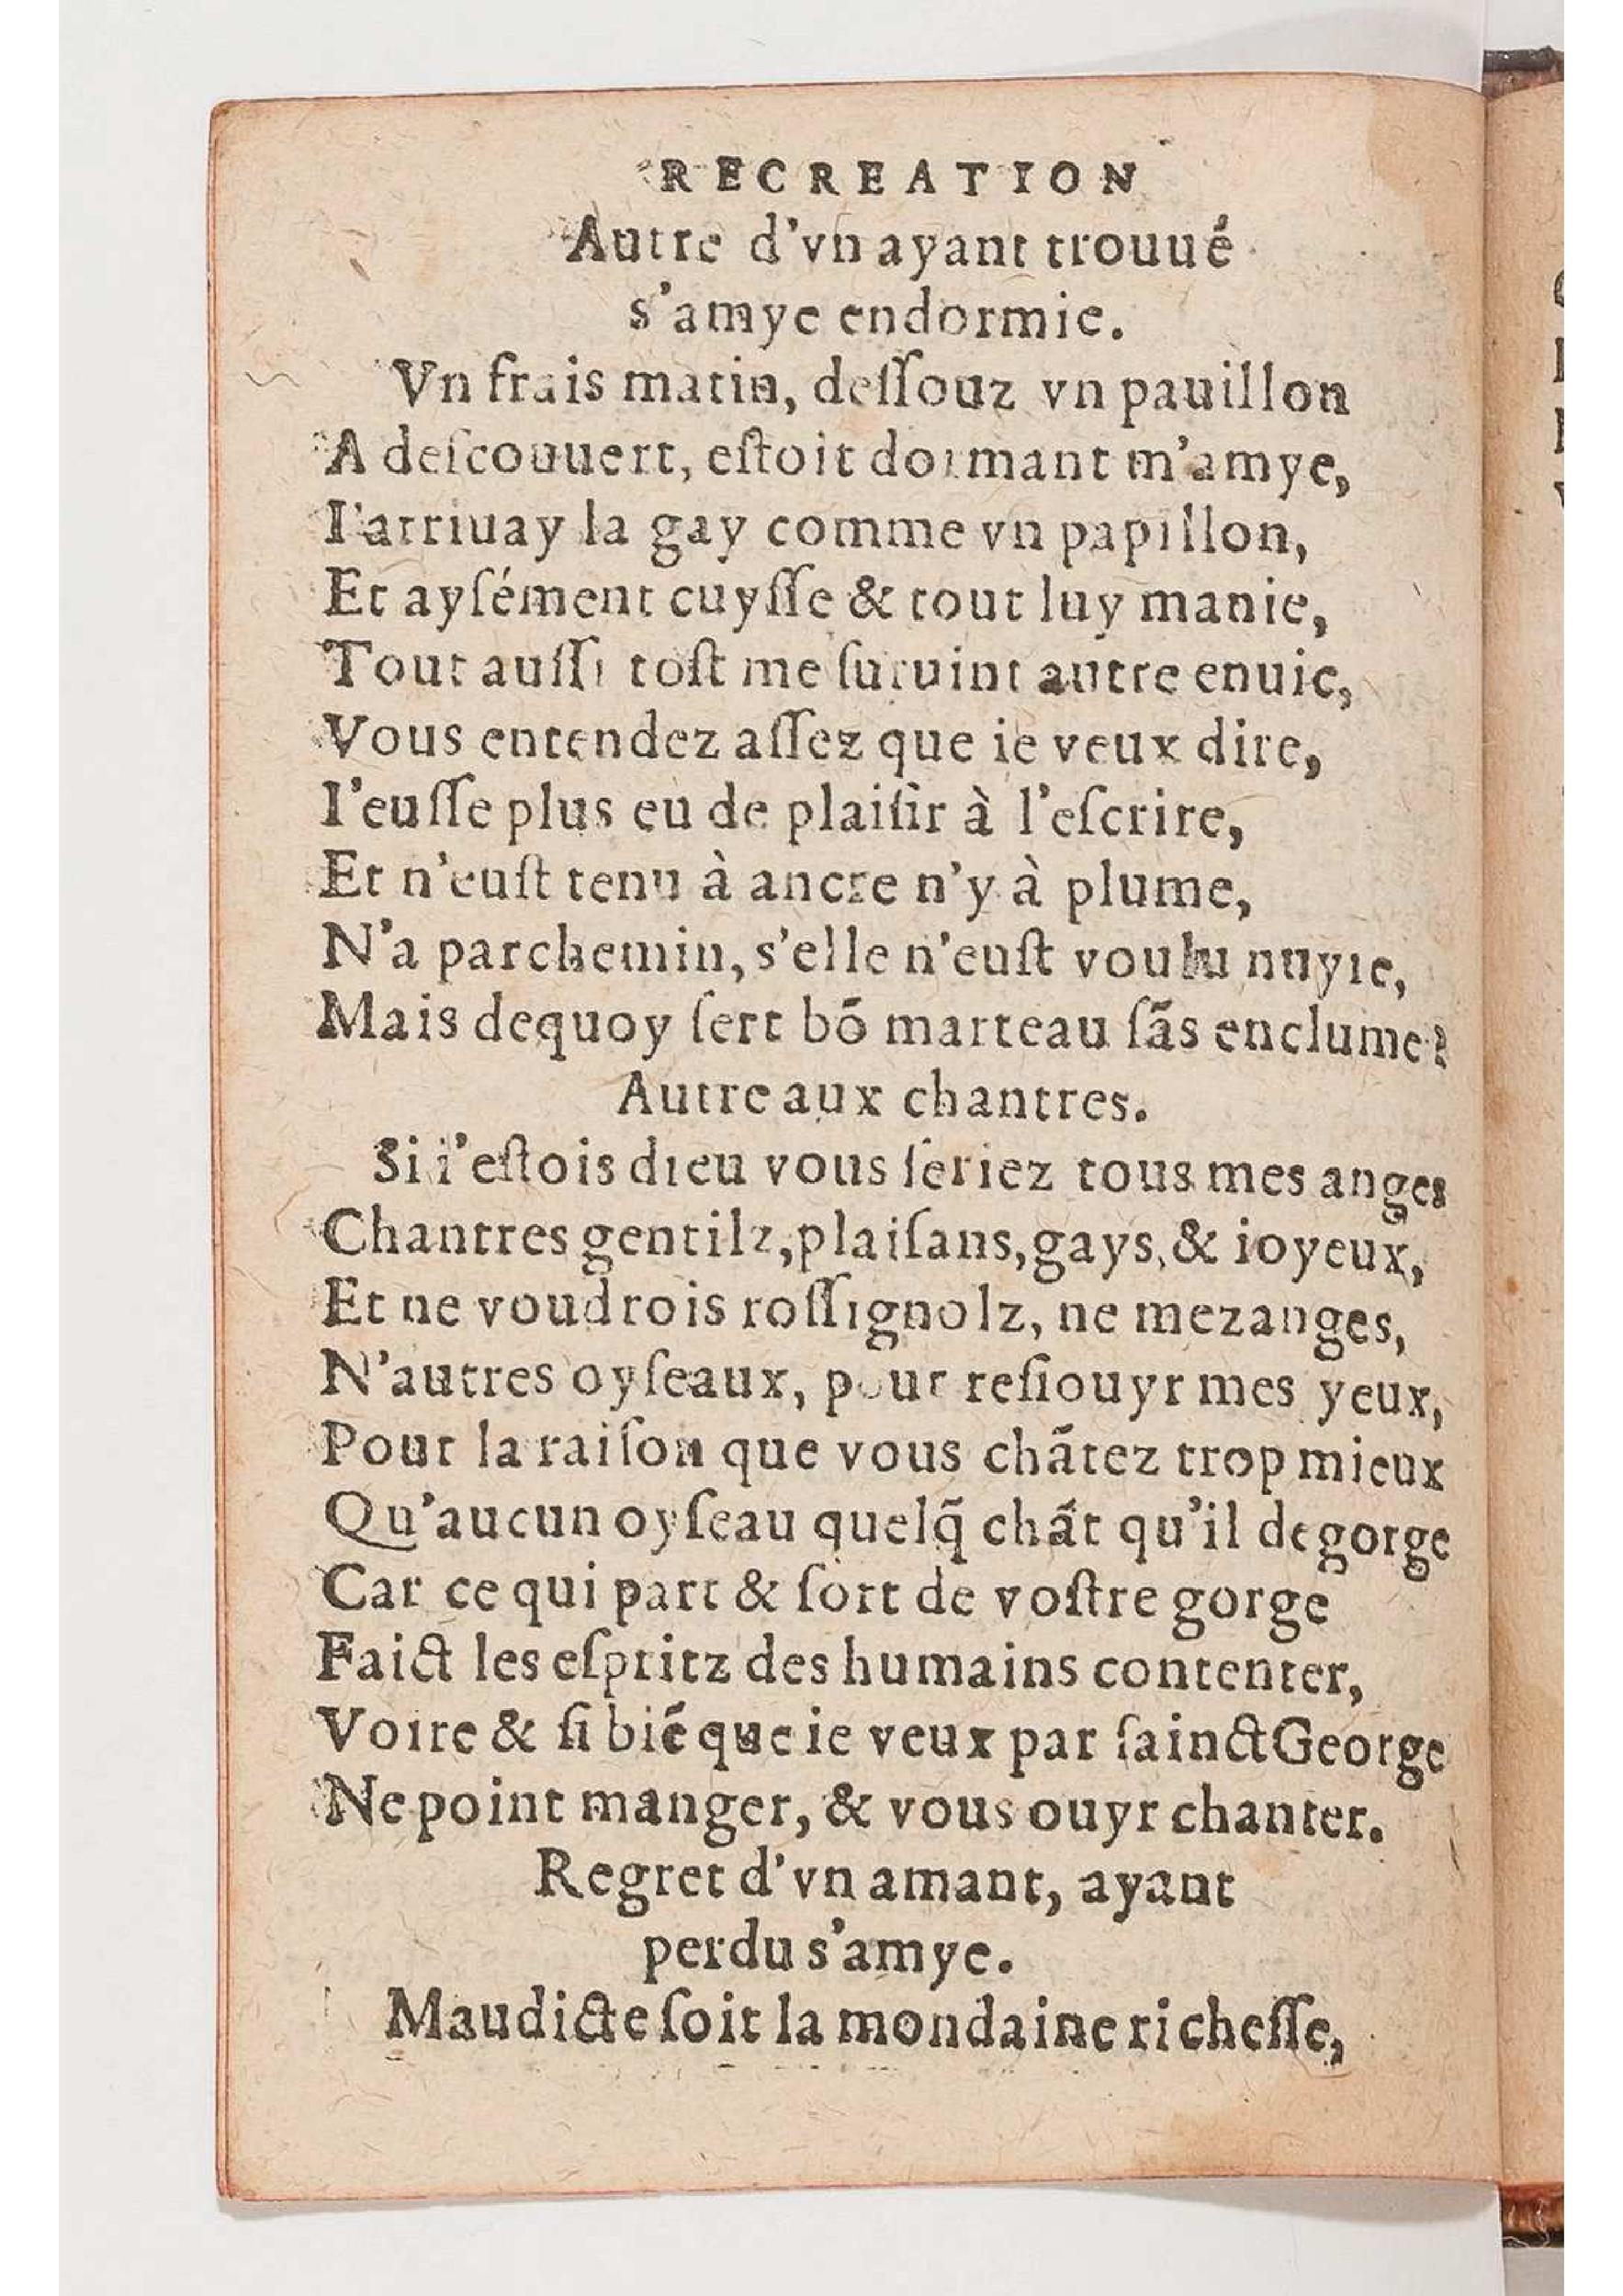 RECREATION
Autre d'vn ayant trouué
s'amye endormie.
Vn frais matin, deſſouz vn pauillon
A deſcouuert, eſtoit dormant m'amye,
I'arriuay la gay comme vn papillon,
Et ayſément cuyſſe & tout luy manie,
Tout auſſi toſt me ſuruint autre enuie,
Vous entendez aſſez que ie veux dire,
I'euſſe plus eu de plaiſir à l'eſcrire,
Et n'euſt tenu à ancre n'y à plume,
N'a parchemin, s'elle n'euſt voulu nuyre,
Mais dequoy ſert bō marteau ſãs enclume?
Autre aux chantres.
Si i'eſtois dieu vous ſeriez tous mes anges
Chantres gentilz, plaiſans, gays, & ioyeux,
Et ne voudrois roſſignolz, ne mezanges,
N'autres oyſeaux, pour reſiouyr mes yeux,
Pour la raiſon que vous chãtez trop mieux
Qu'aucun oyſeau quelq̃ chãt qu'il degorge
Car ce qui part & ſort de voſtre gorge
Faict les eſpritz des humains contenter,
Voire & ſi biē que ie veux par ſainct George
Ne point manger, & vous ouyr chanter.
Regret d'vn amant, ayant
perdu s'amye.
Maudicte ſoit la mondaine richeſſe,